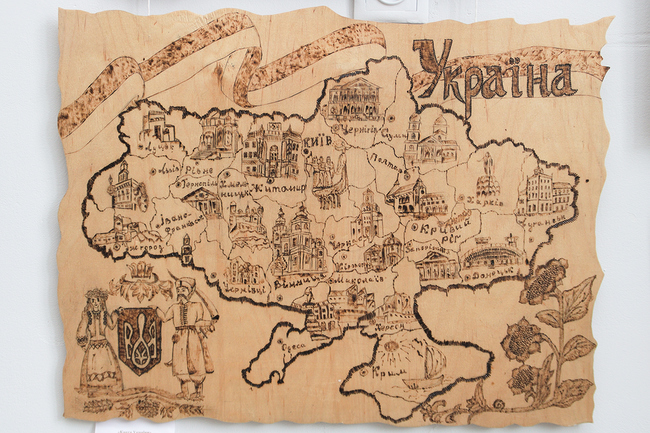 Україна
Чернігів
Суми
Луцьк
Рівне
КИЇВ
Львів
Тернопіль
Житомир
Полтава
Харків
Івано-
Франківськ
Ужгород
Черкаси
Кривий
Ріг
Луганськ
Запоріжжя
Донецьк
Чернівці
Вінниця
Миколаїв
Херсон
Одеса
Крим